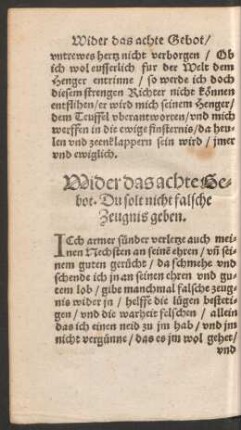 Wider das achte Gebot/
vntrewes hertz nicht verborgen / Ob
ich wol eusserlich fur der Welt dem
Henger entrinne / so werde ich doch
diesem strengen Richter nicht können
entflihen/er wird mich seinem Henger/
dem Teuffel vberantworten/vnd mich
werffen in die ewige finsternis/da heu-
len vnd zeenklappern sein wird / jmer
vnd ewiglich.
Wider das achte Ge-
bot. Du solt nicht falsche
Zeugnis geben.
ICh armer sünder verletze auch mei-
nen Nechsten an seinē ehren / vñ sei-
nem guten gerücht / da schmehe vnd
schende ich jn an seinen ehren vnd gu-
tem lob / gibe manchmal falsche zeug-
nis wider jn / helffe die lügen besteti-
gen / vnd die warheit felschen / allein
das ich einen neid zu jm hab / vnd jm
nicht vergünne / das es jm wol gehet/
vnd